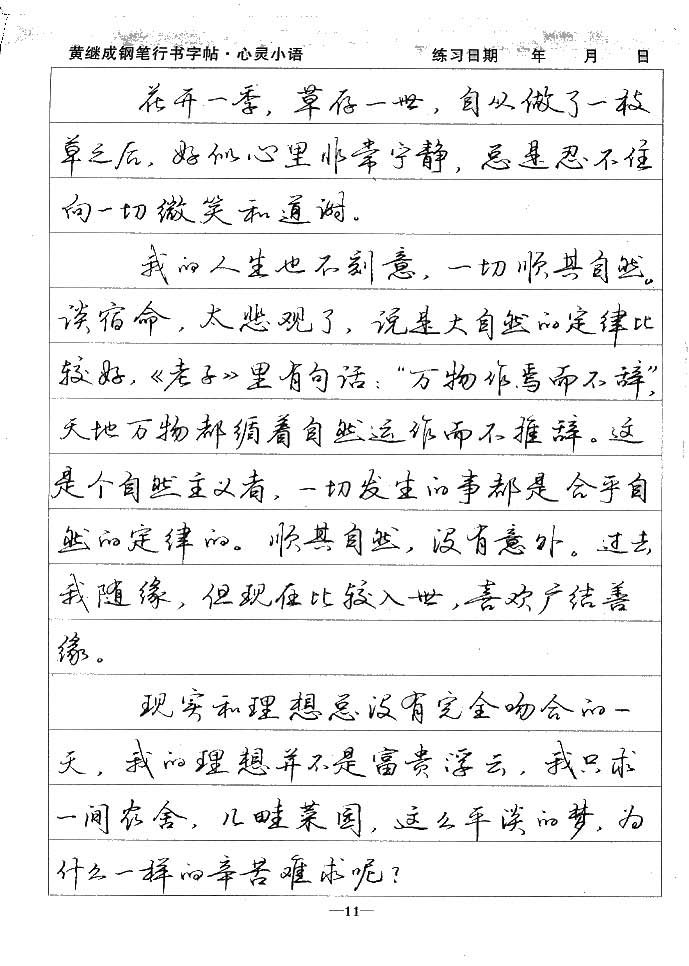 黄继成钢笔行书字帖·心灵小语 练习日期 年 月 日
花开一季，草存一世，自从做了一枝
草之后，好似心里非常宁静，总是忍不住
向一切微笑和道谢。
我的人生也不刻意，一切顺其自然。
谈宿命，太悲观了，说是大自然的定律比
较好，《老子》里有句话：“万物作焉而不辞”，
天地万物都循着自然运作而不推辞。这
是个自然主义者，一切发生的事都是合乎自
然的定律的。顺其自然，没有意外。过去
我随缘，但现在比较入世，喜欢广结善
缘。
现实和理想总没有完全吻合的一
天，我的理想并不是富贵浮云，我只求
一间农舍，几畦菜园，这么平淡的梦，为
什么一样的辛苦难求呢？
—11—